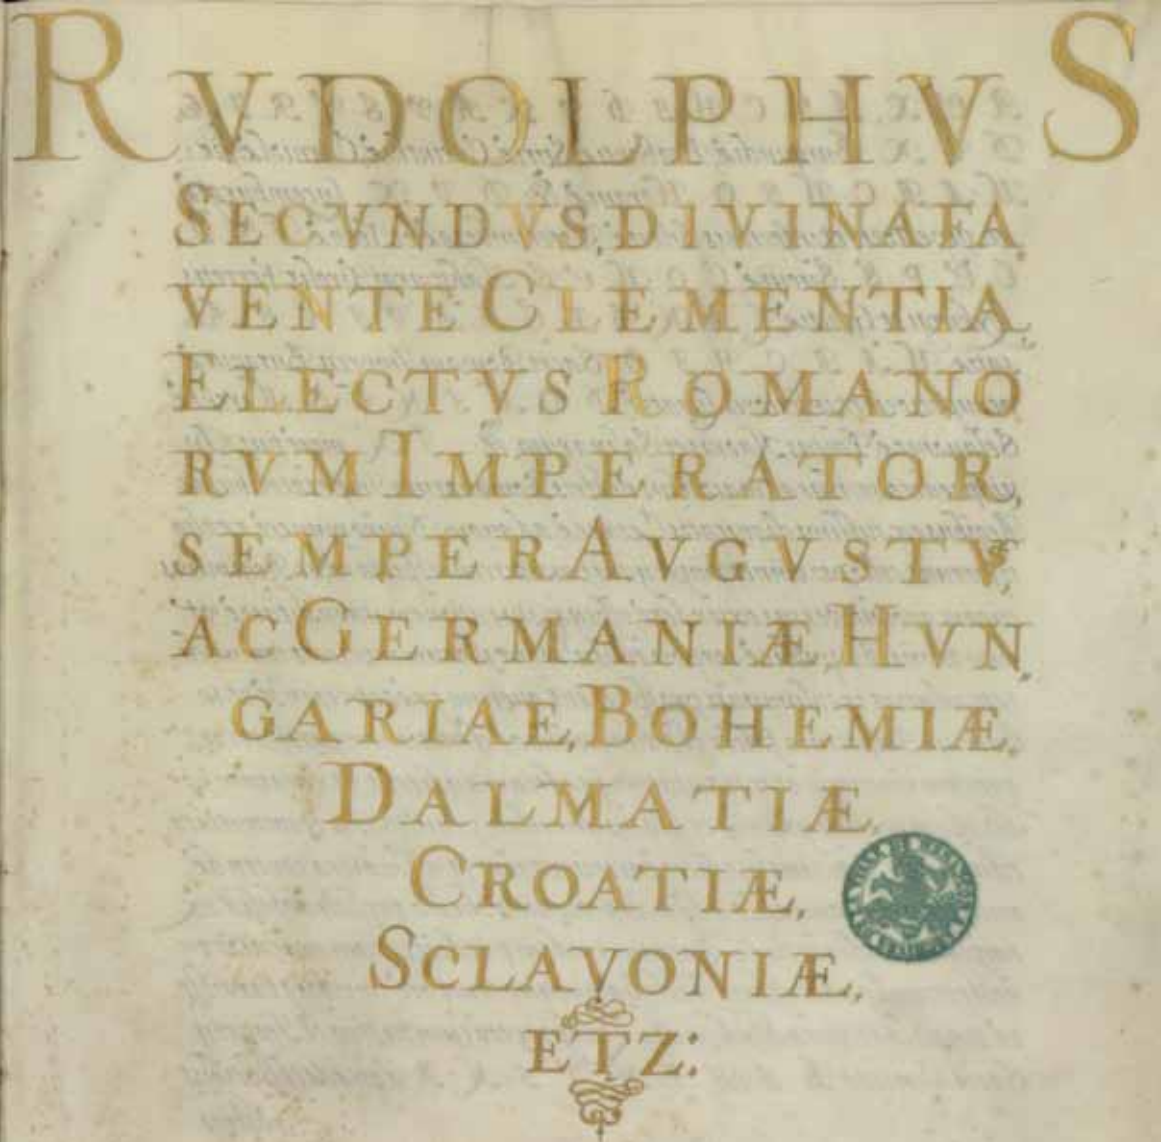 RVDOLPHVS
SECVNDVS, DIVINA FA
VENTE CLEMENTIA,
ELECTVS ROMANO
RVM IMPERATOR,
SEMPER AVGVSTV⁹,
AC GERMANIÆ, HVN,
GARIAE, BOHEMIÆ,
DALMATIÆ,
CROATIÆ,
SCLAVONIÆ,
ETZ: